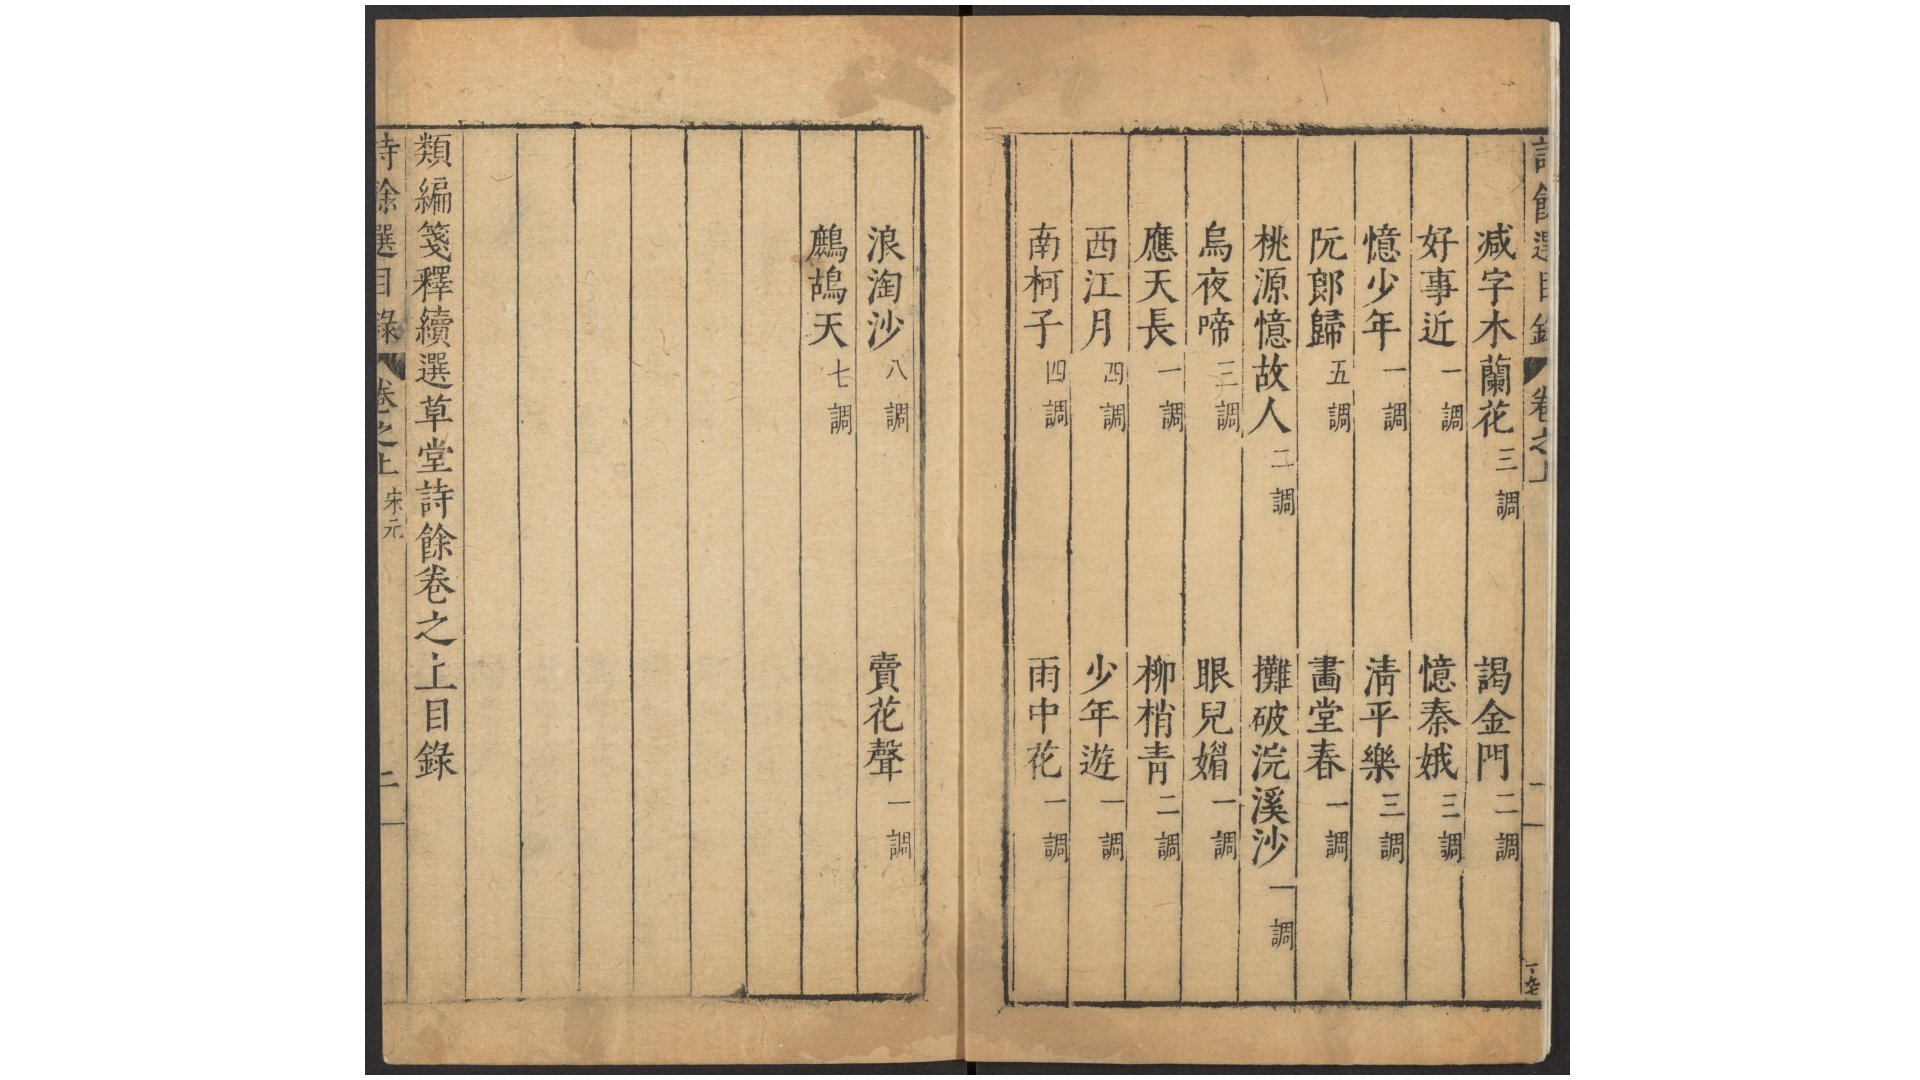 減字木蘭花三調　謁金門二調
好事近一調　憶秦娥三調
憶少年一調　清平樂三調
阮郎歸五調　畫堂春一調
桃源憶故人二調　攤破浣溪沙一調
烏夜啼三調　眼兒媚一調
應天長一調　柳梢青二調
西江月四調　少年遊一調
南柯子四調　雨中花一調
浪淘沙八調　賣花聲一調
鷓鴣天七調
類編箋釋續選草堂詩餘卷之上目錄
詩餘選目錄　卷之上　宋元　二